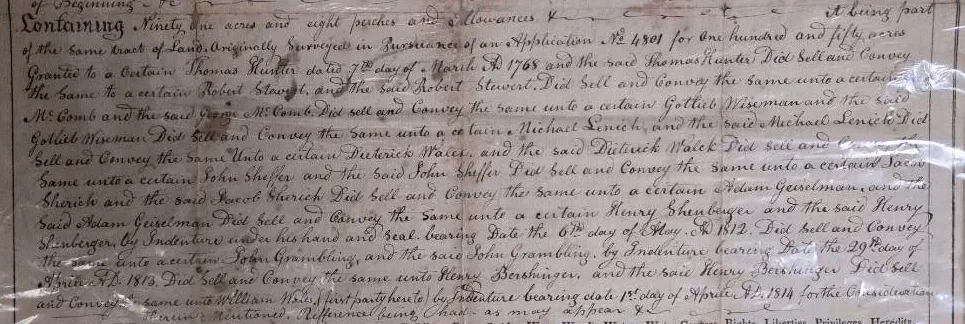 of Beginning &c
Containing Ninety one acres and eight perches and Allowances &c It being part
of the same tract of Land, Originally Surveyed in Pursuance of an Application No 4801 for One hundred and fifty acres
Granted to a Certain Thomas Hunter dated 7th day of March AD 1768 and the said Thomas Hunter Did Sell and Convey
the Same to a certain Robert Stewert, and the said Robert Stewert, Did Sell and Convey the same unto a certain
Mc Comb and the said George Mc Comb, Did sell and Convey the same unto a certain Gotlieb Wiseman and the said
Gotlieb Wiseman Did Sell and Convey the same unto a certain Michael Lenich, and the said Michael Lenich Did
Sell and Convey the Same Unto a certain Dieterick Wales, and the said Dieterick Walck Did Sell and Convey the
Same unto a certain John Sheffer and the Said John Sheffer Did Sell and Convey the same unto a certain Jacob
Sherich and the said Jacob Sherich Did Sell and Convey the Same unto a certain Adam Geiselman, and the
Said Adam Geiselman Did Sell and Convey the Same unto a certain Henry Shenberger and the said Henry
Shenberger, by Indenture under his hand and Seal bearing Date the 6th day of May AD 1812, Did Sell and Convey
the same unto a certain John Grambling, and the said John Grambling, by Indenture bearing Date the 29th day of
Aprile AD. 1813, Did Sell and Convey the same unto Henry Bershinger, and the said Henry Bershinger Did Sell
and Convey same unto William Wales, (first party hereto) by Indenture bearing date 1st day of Aprile AD. 1814 for the Consideration
therein Mentioned. Refference being had as may appear &c
Rights, Liberties, Privileges, Heredits-